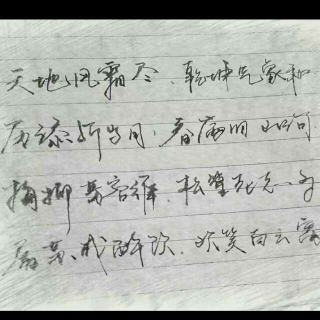 天地风霜尽，乾坤气象和
历添新岁月，春满旧山河
梅柳芳容稚，松篁老态多
屠苏成醉饮，欢笑白云窝